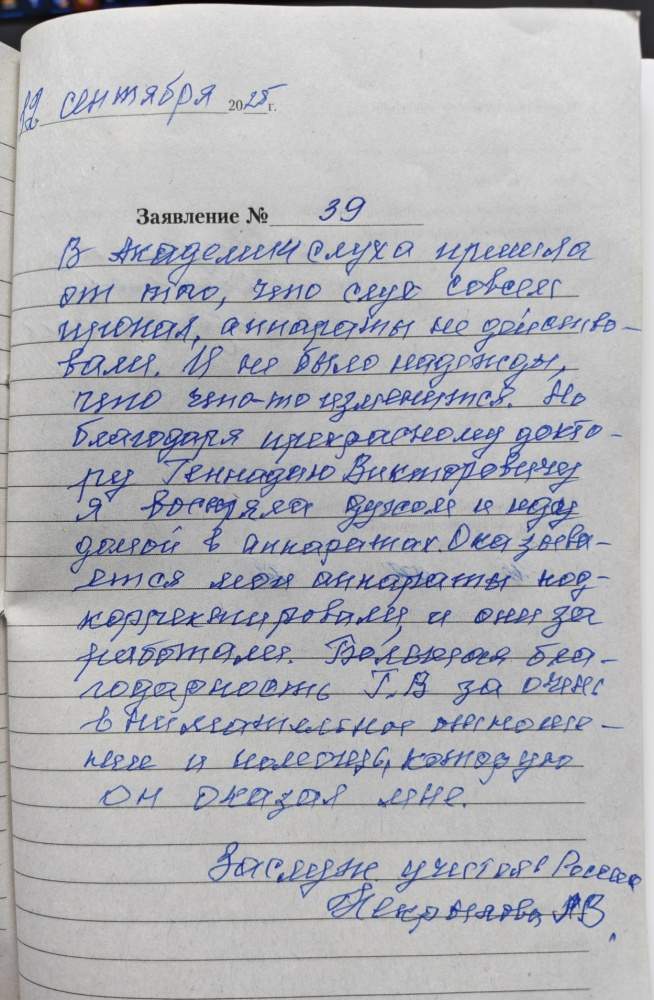 12 сентября 2025 г.
Заявление № 39
В Академии слуха пришла
от того, что слух совсем
пропал, аппараты не действо-
вали. И не было надежды,
что что-то изменится. Но
благодаря прекрасному докто-
ру Геннадию Викторовичу
я воспряла духом и иду
домой в аппаратах. Оказыва-
ется мои аппараты под-
корректировали, и они за
работали. Большая бла-
годарность Г.В за очень
внимательное отноше-
ние и помощь, которую
он оказал мне.
Заслуж учитель России